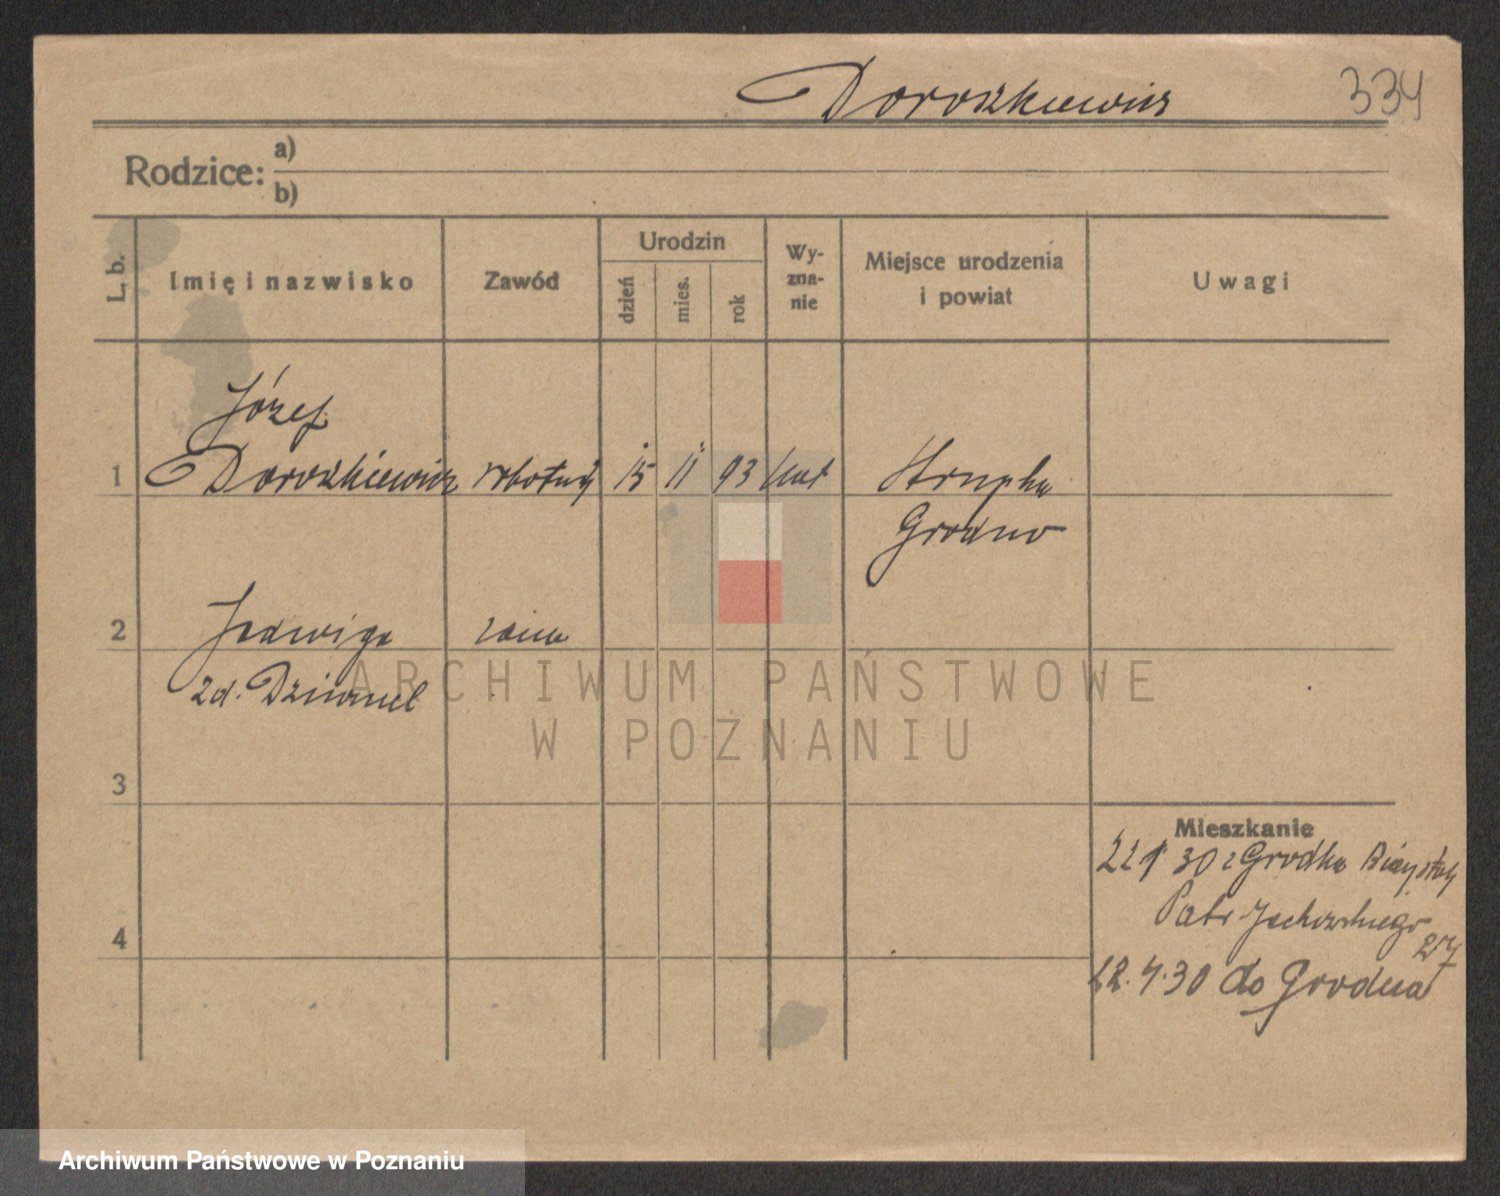 Doroszkiewicz
334
Rodzice: a)
b)
L. b.
Imię i nazwisko
Zawód
Urodzin
dzień
mies.
rok
Wy-
zna-
nie
Miejsce urodzenia
i powiat
Uwagi
Józef
1 Doroszkiewicz robotnik 15 11 93 kat
Grodno
2 Jadwiga żona
zd.
3
Mieszkanie
30 z Gródka
Patr. Jackowskiego
27
4
22.4.30 do Grodna
ARCHIWUM PAŃSTWOWE
W POZNANIU
Archiwum Państwowe w Poznaniu